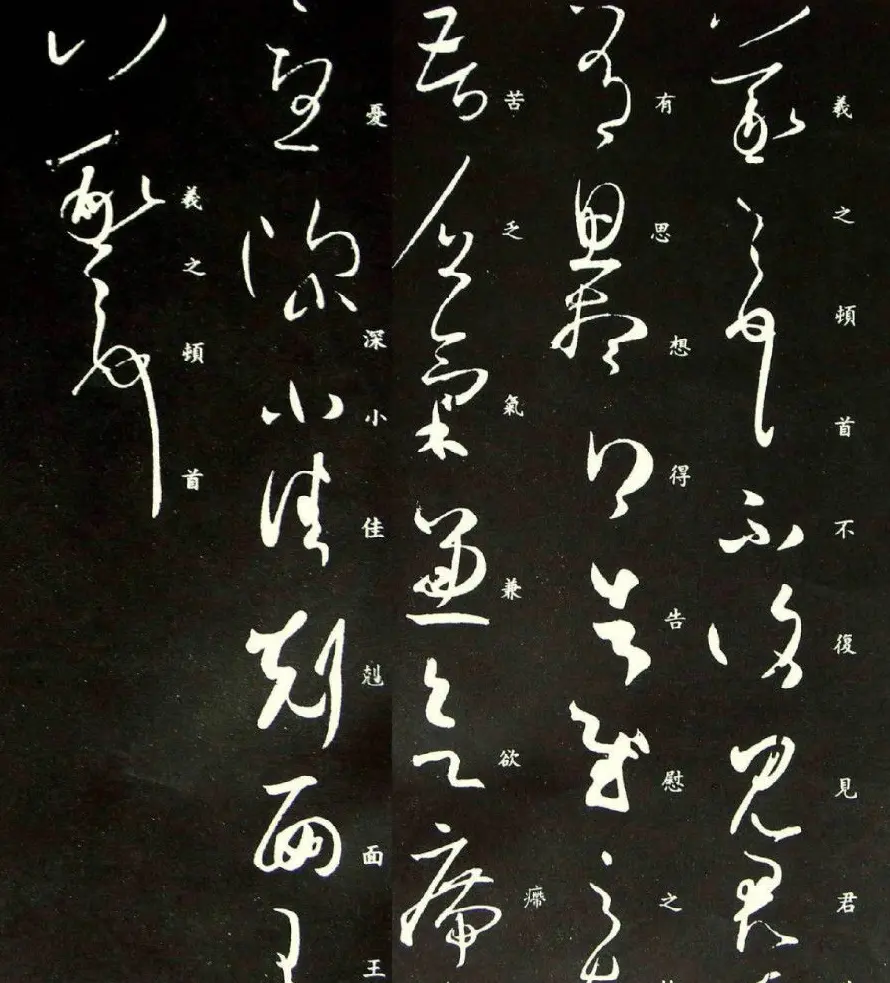 羲之頓首不復見君
有思想得告慰之
苦乏氣兼欲㿃
憂深小佳剋面王
羲之頓首